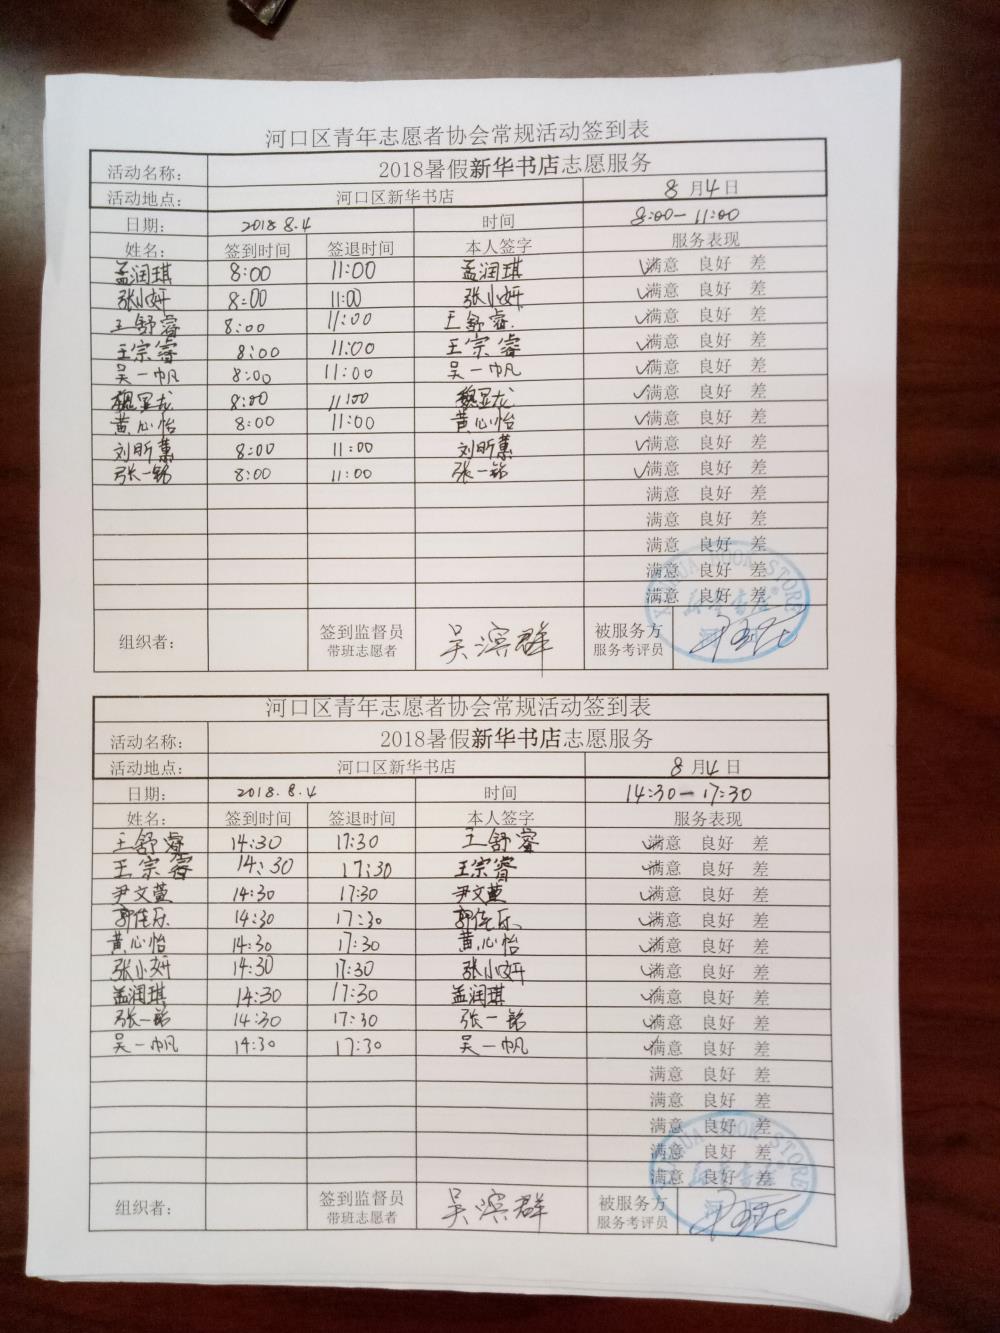 河口区青年志愿者协会常规活动签到表
活动名称: 2018暑假新华书店志愿服务
活动地点: 河口区新华书店 8月4日
日期: 2018.8.4 时间 8:00-11:00
姓名: 签到时间 签退时间 本人签字 服务表现
孟润琪 8:00 11:00 孟润琪 ✓满意 良好 差
张小妍 8:00 11:00 张小妍 ✓满意 良好 差
王舒睿 8:00 11:00 王舒睿 ✓满意 良好 差
王宗睿 8:00 11:00 王宗睿 ✓满意 良好 差
吴一帆 8:00 11:00 吴一帆 ✓满意 良好 差
魏显龙 8:00 11:00 魏显龙 ✓满意 良好 差
黄心怡 8:00 11:00 黄心怡 ✓满意 良好 差
刘昕蕙 8:00 11:00 刘昕蕙 ✓满意 良好 差
张一铭 8:00 11:00 张一铭 ✓满意 良好 差
满意 良好 差
满意 良好 差
满意 良好 差
满意 良好 差
满意 良好 差
XINHUA BOOK STORE
新华书店
组织者: 签到监督员 吴滨群 被服务方
带班志愿者 服务考评员
河口区青年志愿者协会常规活动签到表
活动名称: 2018暑假新华书店志愿服务
活动地点: 河口区新华书店 8月4日
日期: 2018.8.4 时间 14:30-17:30
姓名: 签到时间 签退时间 本人签字 服务表现
王舒睿 14:30 17:30 王舒睿 ✓满意 良好 差
王宗睿 14:30 17:30 王宗睿 ✓满意 良好 差
尹文萱 14:30 17:30 尹文萱 ✓满意 良好 差
郭佳乐 14:30 17:30 郭佳乐 ✓满意 良好 差
黄心怡 14:30 17:30 黄心怡 ✓满意 良好 差
张小妍 14:30 17:30 张小妍 ✓满意 良好 差
孟润琪 14:30 17:30 孟润琪 ✓满意 良好 差
张一铭 14:30 17:30 张一铭 ✓满意 良好 差
吴一帆 14:30 17:30 吴一帆 ✓满意 良好 差
满意 良好 差
满意 良好 差
满意 良好 差
满意 良好 差
满意 良好 差
XINHUA BOOK STORE
新华书店
组织者: 签到监督员 吴滨群 被服务方
带班志愿者 服务考评员